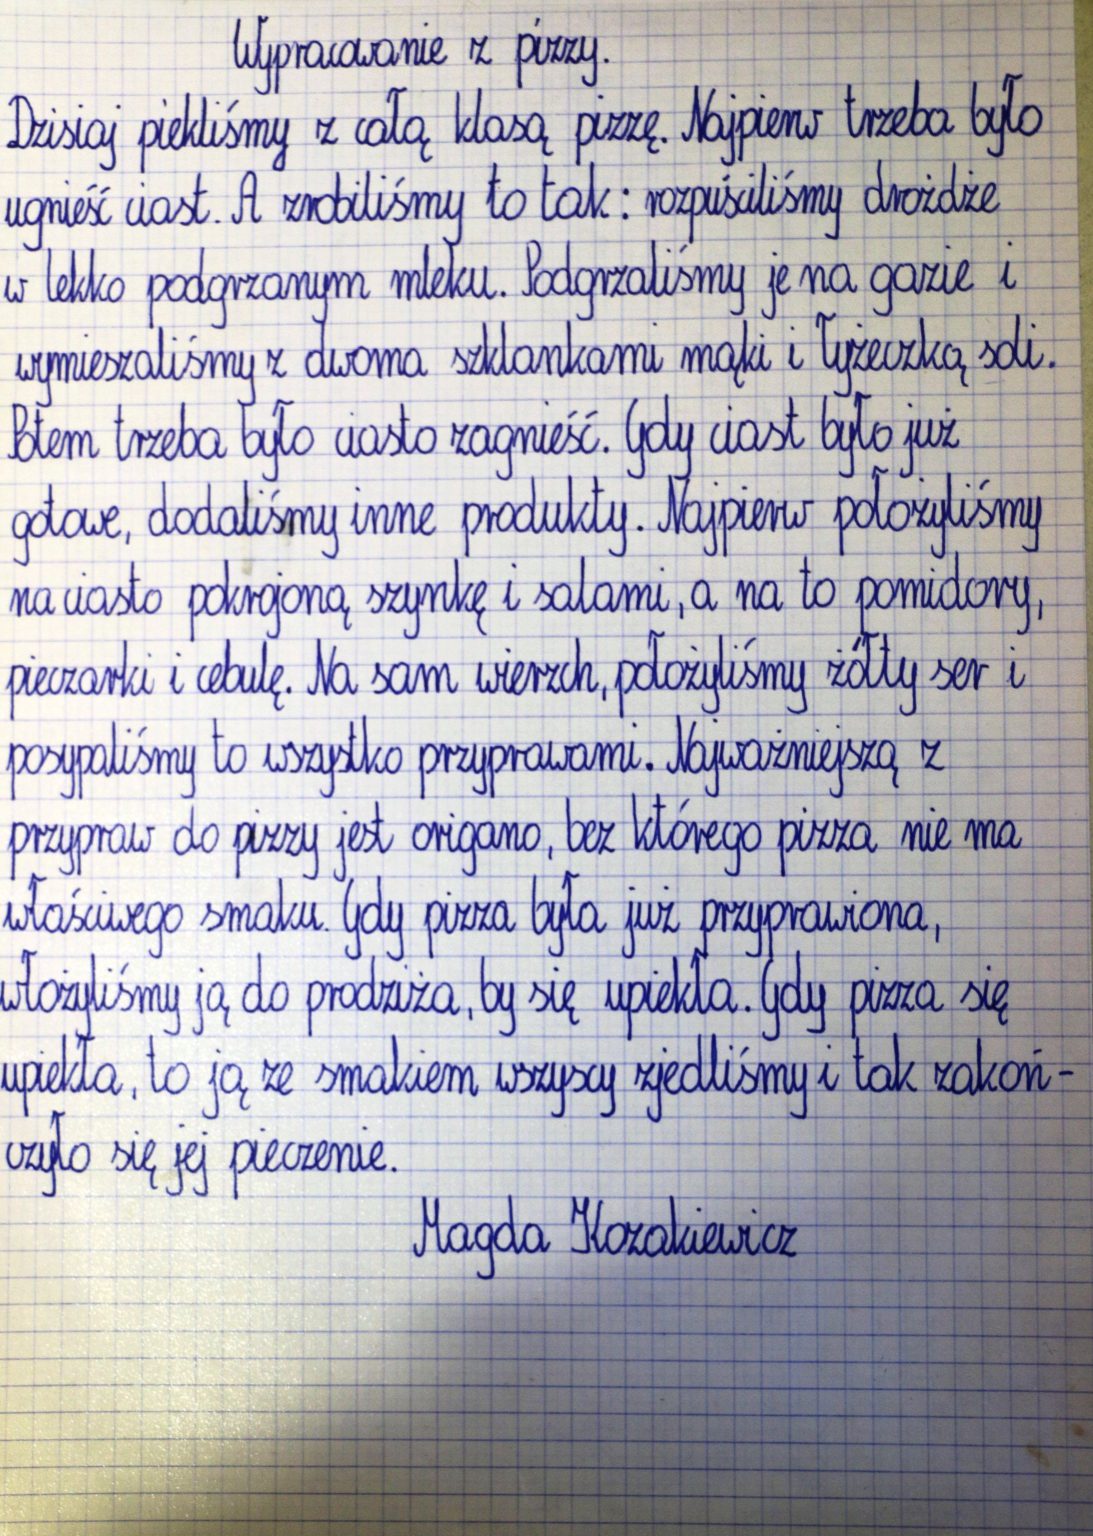 Wypracowanie z pizzy.
Dzisiaj piekliśmy z całą klasą pizzę. Najpierw trzeba było
ugnieść ciast. A zrobiliśmy to tak: rozpuściliśmy drożdże
w lekko podgrzanym mleku. Podgrzaliśmy je na gazie i
wymieszaliśmy z dwoma szklankami mąki i łyżeczką soli.
Potem trzeba było ciasto zagnieść. Gdy ciast było już
gotowe, dodaliśmy inne produkty. Najpierw położyliśmy
na ciasto pokrojoną szynkę i salami, a na to pomidory,
pieczarki i cebulę. Na sam wierzch, położyliśmy żółty ser i
posypaliśmy to wszystko przyprawami. Najważniejszą z
przypraw do pizzy jest origano, bez którego pizza nie ma
właściwego smaku. Gdy pizza była już przyprawiona,
włożyliśmy ją do prodziża, by się upiekła. Gdy pizza się
upiekła, to ją ze smakiem wszyscy zjedliśmy i tak zakoń-
czyło się jej pieczenie.
Magda Kozakiewicz